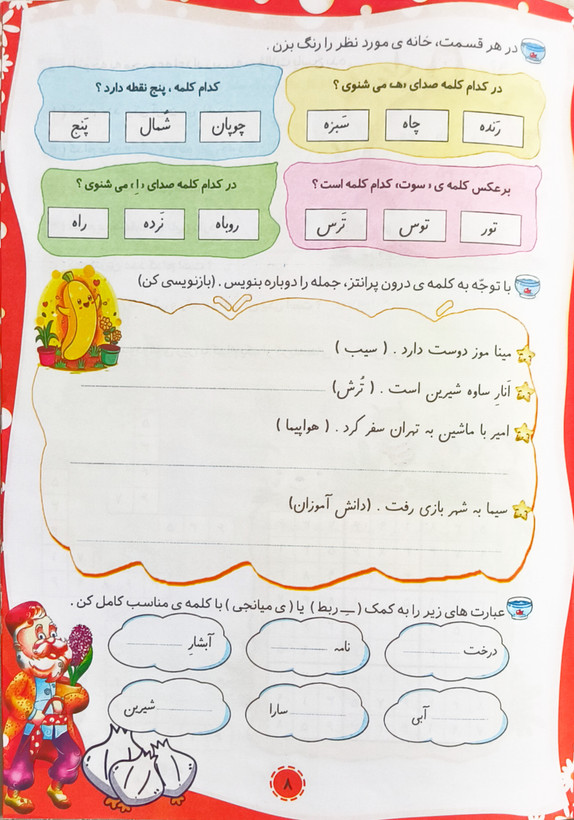 در هر قسمت، خانه ی مورد نظر را رنگ بزن .
در کدام کلمه صدای «هـ» می شنوی ؟
رَنده
چاه
سَبزه
کدام کلمه ، پنج نقطه دارد ؟
چوپان
شُمال
پَنج
برعکس کلمه ی « سوت» کدام کلمه است ؟
تور
توس
تَرس
در کدام کلمه صدای « اِ » می شنوی ؟
روباه
نَرده
راه
با توجّه به کلمه ی درون پرانتز، جمله را دوباره بنویس . (بازنویسی کن)
مینا موز دوست دارد . ( سیب )
اَنارِ ساوه شیرین است . ( تُرش)
امیر با ماشین به تهران سفر کرد . ( هواپیما )
سیما به شهر بازی رفت . (دانش آموزان)
عبارت های زیر را به کمک ( ـِ ربط ) یا ( ی میانجی ) با کلمه ی مناسب کامل کن .
درخت
نامه
آبشارِ
آبی
سارا
شیرین
۸